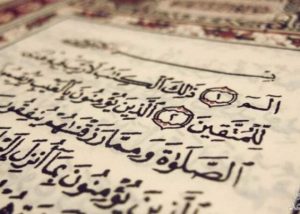 الٓمٓ ۝١ ذَٰلِكَ ٱلْكِتَٰبُ لَا رَيْبَ
لِّلْمُتَّقِينَ ۝٢ ٱلَّذِينَ يُؤْمِنُونَ بِٱلْغَيْبِ
ٱلصَّلَوٰةَ وَمِمَّا رَزَقْنَٰهُمْ يُنفِقُونَ
يُؤْمِنُونَ بِمَآ أُنزِلَ إِلَيْكَ